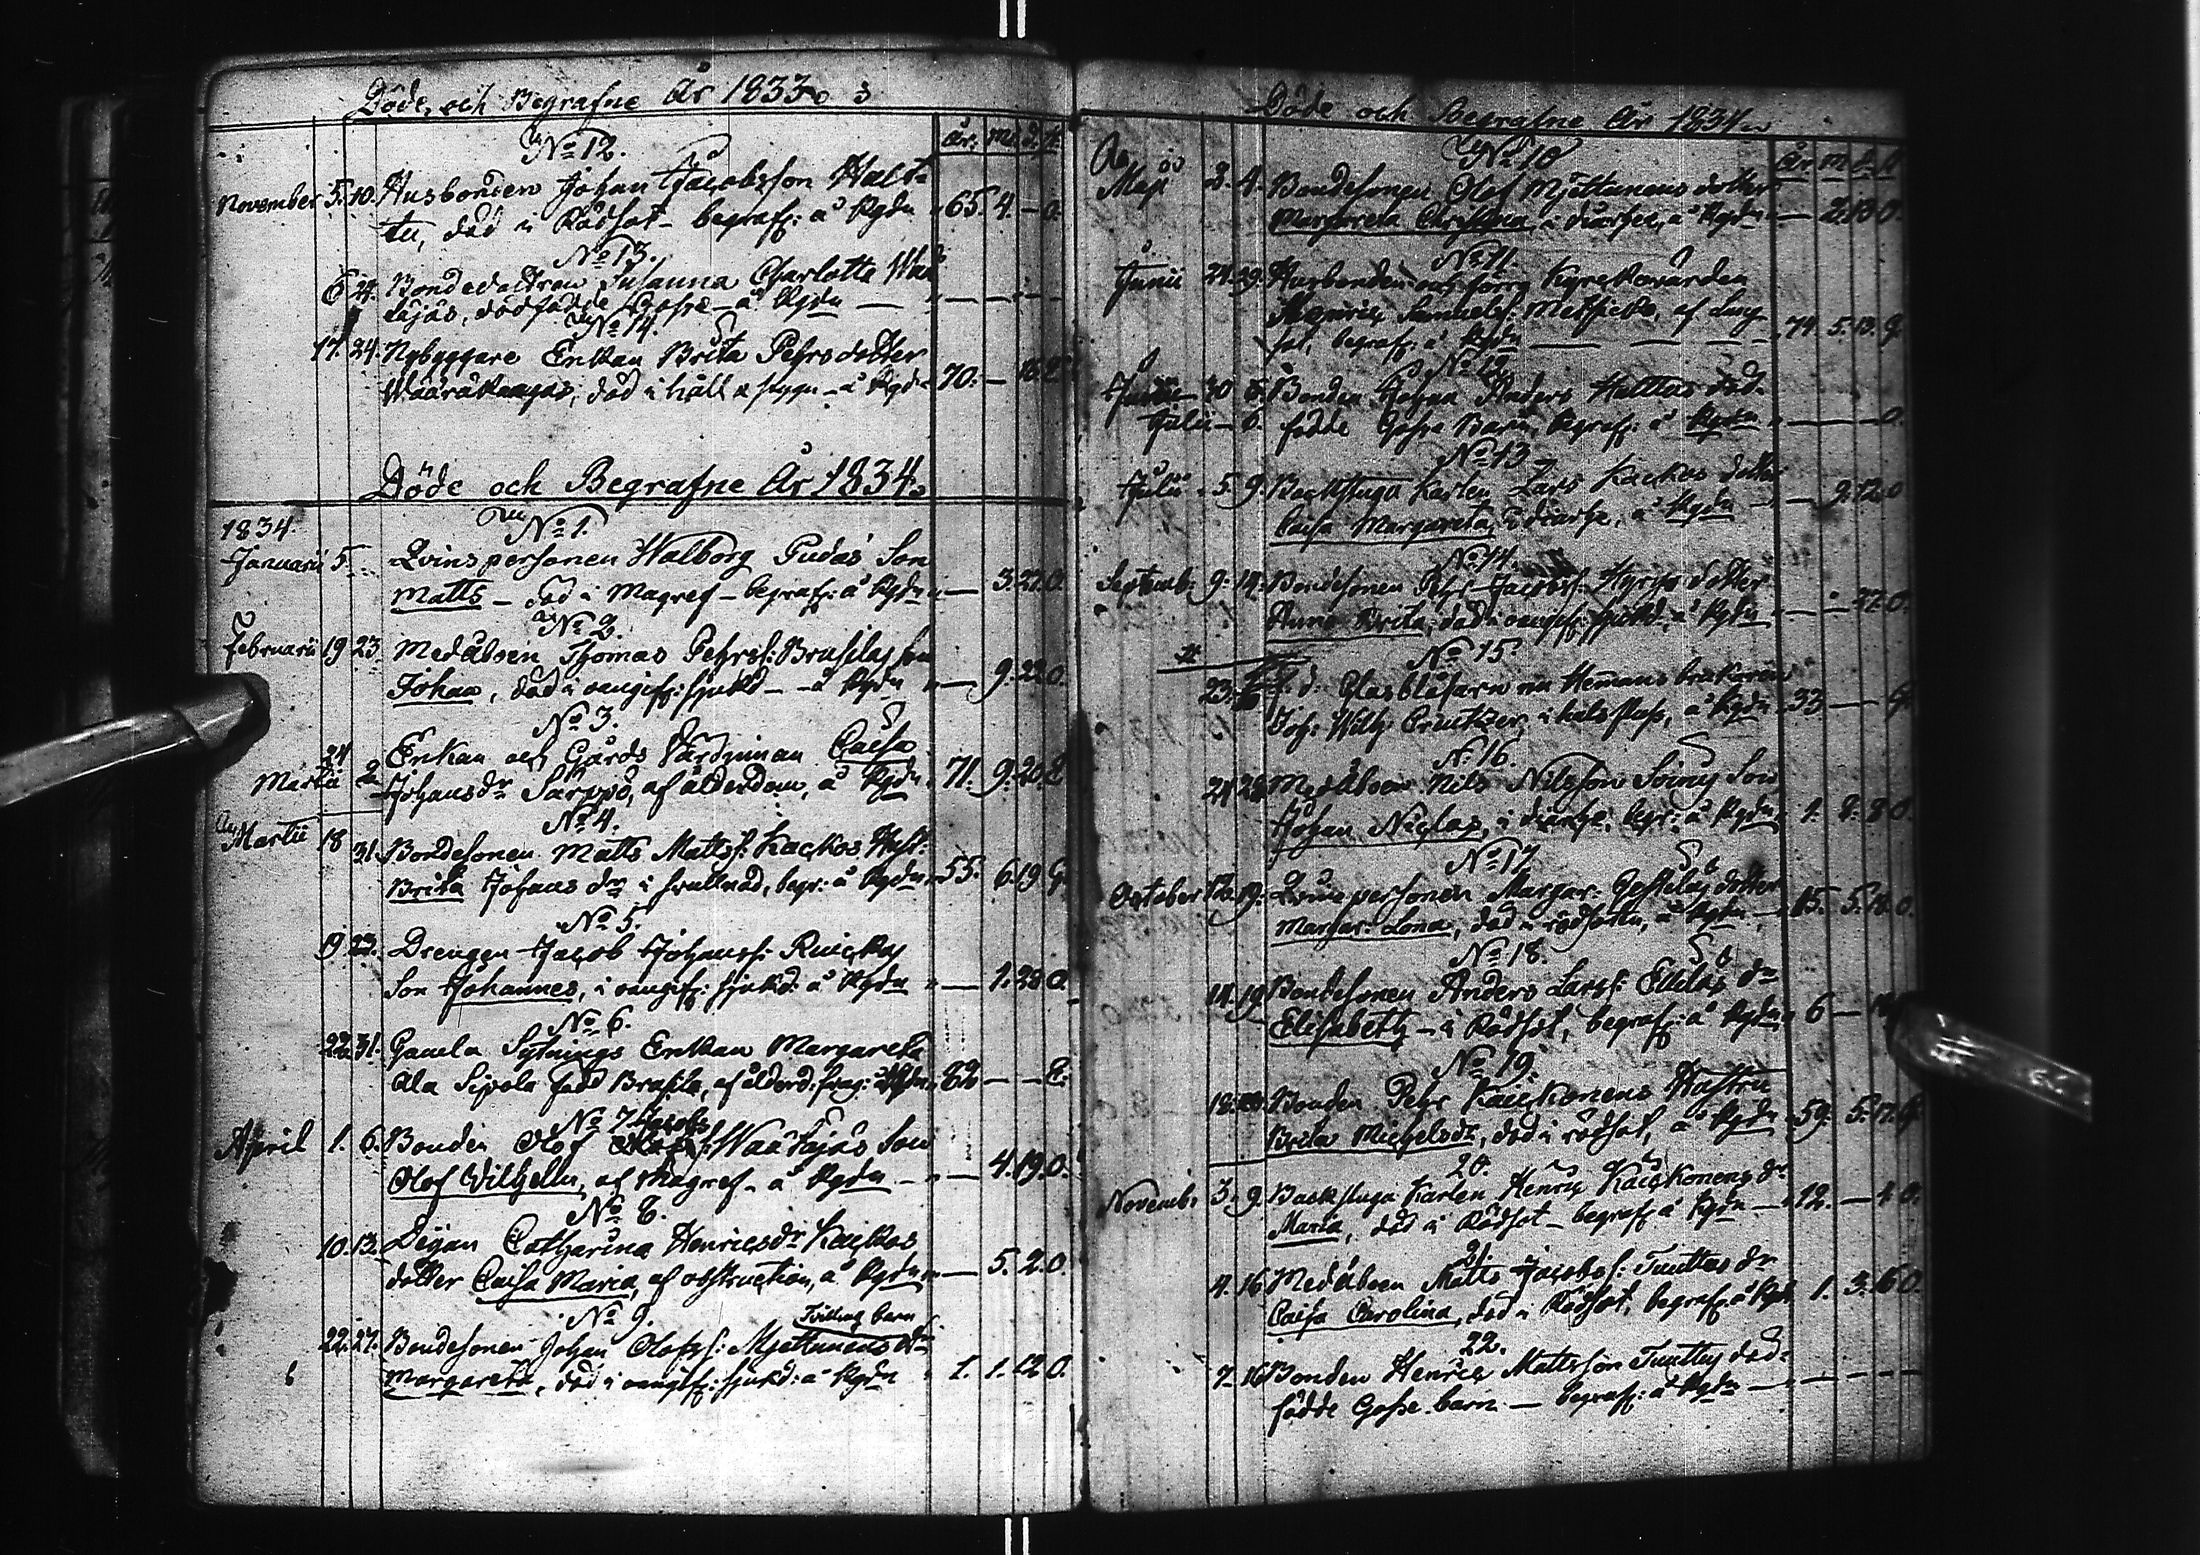 Döde, och Begrafne År 1833
År. M. D. 
No 12.
November 5. 10. Husbonden Johan Jacobsson Halt-
tu, död i Rödsot - begraff: å Kgdn 65. 4. - 0.
No 13.
6 24. Bondedottren Susanna Charlotta
dödfödde - å Kgdn
No 14.
17. 24. Nybyggare Enkan Brita Pehrsdotter
Wääräkangas, död i håll o styng - å Kgdn 70. -
Döde och Begrafne År 1834.
1834.
No 1.
Januarii 5 Qvinspersonen Walborg Pudas' Son
Matts - död i Magref - begraf: å Kgdn - 3. 27. 0.
No 2.
Februarii 19 23 Medåboen Thomas Pehrss: Brusilas son
Johan, död i oangif: sjukd - å Kgdn - 9. 22. 0.
No 3.
24 Enkan och Gårds Värdinnan Caisa
Martii 2 Johansdr Särppö, af ålderdom, å Kgdn 71. 9. 20. E
No 4.
Martii 18 31. Bondesonen Matts Mattss: Kackos Hust:
Brita Johans dr i svullnad, begr: å Kgdn 55. 6. 19 G.
No 5.
19. 23. Drengen Jacob Johanss: Ruickas
Son Johannes, i oangif: sjukd: å Kgdn - 1. 28 0.
No 6.
22. 31. Gamla Sytnings Enkan Margareta
Ala Sipola född Brusila, af ålderd: å Kgdn 82 - - E.
No 7. Jacobs
April 1. 6. Bonden Olof Waarajas Son
Olof Wilhelm, af Magref - å Kgdn - 4. 19. 0.
No 8.
10. 13. Pigan Catharina Henricsdr Kackos
dotter Caisa Maria, af obstruction, å Kgdn - 5. 2. 0.
No 9. Tvilling barn
22. 27. Bondesonen Johan Olofss: Mjettunens dr
Margareta, död i oangif: sjukd: å Kgdn 1. 1. 12 0.
Döde och Begrafne År 1834
År. M. D.
No 10
Maji 2. 4. Bondesonen Olof Mjettunens dotter
Margareta Christina, i diarhe, å Kgdn - 2. 13 0.
No 11.
Junii 24. 29. Husbonden och förra Kyrkovärden
Henric Samuels: af Lung-
sot, begraf: å Kgdn 74. 5. 13. G
No 12
Junii 30 Bonden Johan Anders Halttus död-
Julii 6. födde Gosse Barn, begraf: å Kgdn - - 0.
No 13
Julii 5. 9. Backstuga Karlen Lars Kackos dotter
Caisa Margareta, i diarhe, å Kgdn - 9. 12. 0
No 14.
Septemb: 9. 14. Bondesonen Pehr Jacobs: dotter
Anna Brita, död i oangif: sjukd: å Kgdn - - 27. 0.
No 15
23. f. d. Glasblåsaren
Joh: Wilh: Creutzer, i å Kgdn 33 - - G
N: 16.
24 28 Medåboen Nils Nilsson Soinis Son
Johan Niclas, i diarhe, begr: å Kgdn 1. 8. 8 0.
No 17
October 12. 19. Qvinspersonen Margar: dotter
Margar: Lena, död i rödsoten, å Kgdn 15. 5. 18. 0.
No 18.
14. 19 Bondesonen Anders Larss: Ellilas dr
Elisabeth - i Rödsot, begraf: å Kgdn 6 -
No 19.
18. Bonden Pehr Kaickonens Hustru
Brita Michelsdr, död i rödsot, å Kgdn 59. 5. 17. G
20.
Novemb: 3. 9. Backstuga Karlen Henric Kaickonens dr
Maria, död i Rödsot - begraf: å Kgdn - 12. - 1. 0.
21.
4. 16 Medåboen Matts Jacobs: Tuuttas dr
Caisa Carolina, död i Rödsot, begraf: å Kgdn 1. 3. 6 0.
22.
7. 16 Bonden Henric Mattsson Tuuttas död-
födde Gosse barn - begraf: å Kgdn